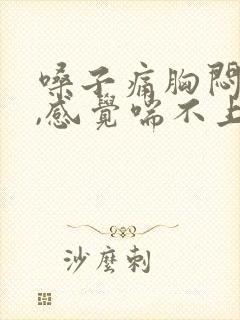 嗓子痛胸悶
,感覺喘不上
沙麼刺